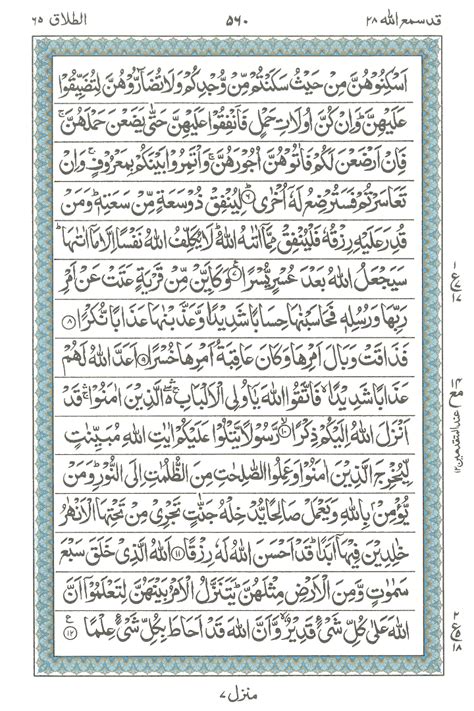 قد سمع الله ٢٨
٥٦٠
الطلاق ٦٥
اَسْكِنُوْهُنَّ مِنْ حَيْثُ سَكَنْتُمْ مِّنْ وُّجْدِكُمْ وَلَا تُضَآرُّوْهُنَّ لِتُضَيِّقُوْا
عَلَيْهِنَّ ؕ وَاِنْ كُنَّ اُولَاتِ حَمْلٍ فَاَنْفِقُوْا عَلَيْهِنَّ حَتّٰى يَضَعْنَ حَمْلَهُنَّ ۚ
فَاِنْ اَرْضَعْنَ لَكُمْ فَاٰتُوْهُنَّ اُجُوْرَهُنَّ ۚ وَاْتَمِرُوْا بَيْنَكُمْ بِمَعْرُوْفٍ ۚ وَاِنْ
تَعَاسَرْتُمْ فَسَتُرْضِعُ لَهٗۤ اُخْرٰى ؕ﴿۶﴾ لِيُنْفِقْ ذُوْ سَعَةٍ مِّنْ سَعَتِهٖ ؕ وَمَنْ
قُدِرَ عَلَيْهِ رِزْقُهٗ فَلْيُنْفِقْ مِمَّاۤ اٰتٰىهُ اللّٰهُ ؕ لَا يُكَلِّفُ اللّٰهُ نَفْسًا اِلَّا مَاۤ اٰتٰىهَا ؕ
سَيَجْعَلُ اللّٰهُ بَعْدَ عُسْرٍ يُّسْرًا ﴿۷﴾ وَكَاَيِّنْ مِّنْ قَرْيَةٍ عَتَتْ عَنْ اَمْرِ
رَبِّهَا وَرُسُلِهٖ فَحَاسَبْنٰهَا حِسَابًا شَدِيْدًا ۙ وَّعَذَّبْنٰهَا عَذَابًا نُّكْرًا ﴿۸﴾
فَذَاقَتْ وَبَالَ اَمْرِهَا وَكَانَ عَاقِبَةُ اَمْرِهَا خُسْرًا ﴿۹﴾ اَعَدَّ اللّٰهُ لَهُمْ
عَذَابًا شَدِيْدًا ۙ فَاتَّقُوا اللّٰهَ يٰۤاُولِى الْاَلْبَابِ ۛۚ الَّذِيْنَ اٰمَنُوْا ۛؕ قَدْ
اَنْزَلَ اللّٰهُ اِلَيْكُمْ ذِكْرًا ﴿۱۰﴾ رَّسُوْلًا يَّتْلُوْا عَلَيْكُمْ اٰيٰتِ اللّٰهِ مُبَيِّنٰتٍ
لِّيُخْرِجَ الَّذِيْنَ اٰمَنُوْا وَعَمِلُوا الصّٰلِحٰتِ مِنَ الظُّلُمٰتِ اِلَى النُّوْرِ ؕ وَمَنْ
يُّؤْمِنْۢ بِاللّٰهِ وَيَعْمَلْ صَالِحًا يُّدْخِلْهُ جَنّٰتٍ تَجْرِىْ مِنْ تَحْتِهَا الْاَنْهٰرُ
خٰلِدِيْنَ فِيْهَاۤ اَبَدًا ؕ قَدْ اَحْسَنَ اللّٰهُ لَهٗ رِزْقًا ﴿۱۱﴾ اَللّٰهُ الَّذِىْ خَلَقَ سَبْعَ
سَمٰوٰتٍ وَّمِنَ الْاَرْضِ مِثْلَهُنَّ ؕ يَتَنَزَّلُ الْاَمْرُ بَيْنَهُنَّ لِتَعْلَمُوْۤا اَنَّ
اللّٰهَ عَلٰى كُلِّ شَىْءٍ قَدِيْرٌ ۙ وَّاَنَّ اللّٰهَ قَدْ اَحَاطَ بِكُلِّ شَىْءٍ عِلْمًا ﴿۱۲﴾
١
ع
١٧
١٤
مع
عند المتقدمين ١٢
٢
ع
١٨
منزل ٧